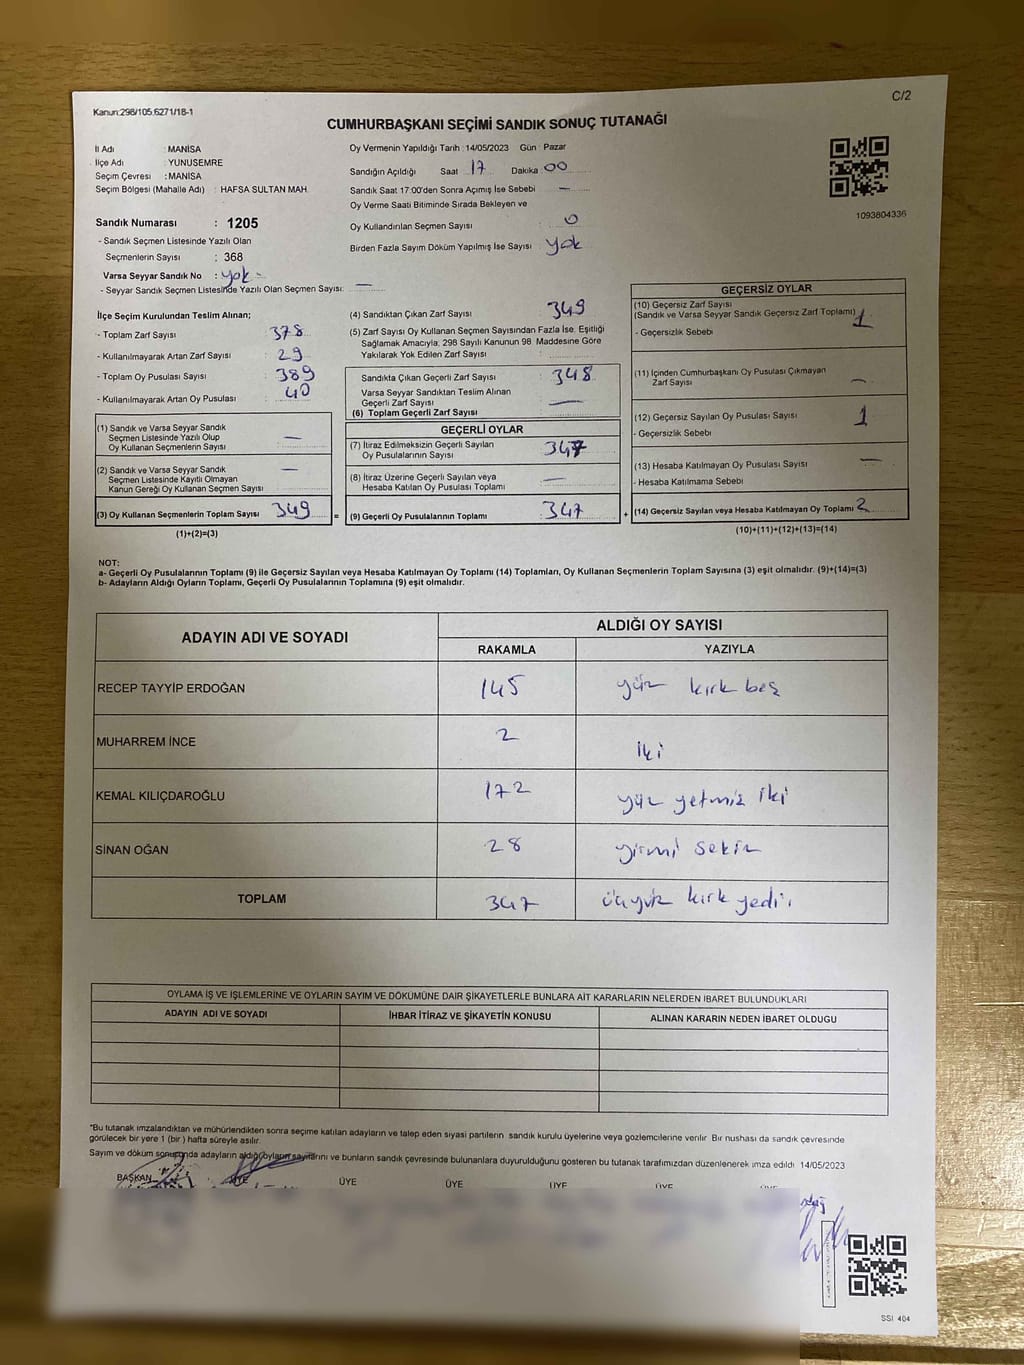 Kanun:298/105,6271/18-1
C/2
CUMHURBAŞKANI SEÇİMİ SANDIK SONUÇ TUTANAĞI
İl Adı : MANİSA
İlçe Adı : YUNUSEMRE
Seçim Çevresi : MANİSA
Seçim Bölgesi (Mahalle Adı) : HAFSA SULTAN MAH.
Sandık Numarası : 1205
- Sandık Seçmen Listesinde Yazılı Olan
Seçmenlerin Sayısı : 368
Varsa Seyyar Sandık No : yok -
- Seyyar Sandık Seçmen Listesinde Yazılı Olan Seçmen Sayısı: —
Oy Vermenin Yapıldığı Tarih : 14/05/2023 Gün : Pazar
Sandığın Açıldığı Saat 17 Dakika 00
Sandık Saat 17:00'den Sonra Açımış İse Sebebi —
Oy Verme Saati Bitiminde Sırada Bekleyen ve
Oy Kullandırılan Seçmen Sayısı : 0
Birden Fazla Sayım Döküm Yapılmış İse Sayısı : yok
1093804336
İlçe Seçim Kurulundan Teslim Alınan;
- Toplam Zarf Sayısı : 378
- Kullanılmayarak Artan Zarf Sayısı : 29
- Toplam Oy Pusulası Sayısı : 389
- Kullanılmayarak Artan Oy Pusulası : 40
(1) Sandık ve Varsa Seyyar Sandık
Seçmen Listesinde Yazılı Olup
Oy Kullanan Seçmenlerin Sayısı —
(2) Sandık ve Varsa Seyyar Sandık
Seçmen Listesinde Kayıtlı Olmayan
Kanun Gereği Oy Kullanan Seçmen Sayısı —
(3) Oy Kullanan Seçmenlerin Toplam Sayısı 349 =
(1)+(2)=(3)
(4) Sandıktan Çıkan Zarf Sayısı : 349
(5) Zarf Sayısı Oy Kullanan Seçmen Sayısından Fazla İse. Eşitliği
Sağlamak Amacıyla, 298 Sayılı Kanunun 98. Maddesine Göre
Yakılarak Yok Edilen Zarf Sayısı :
Sandıkta Çıkan Geçerli Zarf Sayısı : 348
Varsa Seyyar Sandıktan Teslim Alınan
Geçerli Zarf Sayısı : —
(6) Toplam Geçerli Zarf Sayısı :
GEÇERLİ OYLAR
(7) İtiraz Edilmeksizin Geçerli Sayılan
Oy Pusulalarının Sayısı : 347
(8) İtiraz Üzerine Geçerli Sayılan veya
Hesaba Katılan Oy Pusulası Toplamı : —
(9) Geçerli Oy Pusulalarının Toplamı : 347 +
GEÇERSİZ OYLAR
(10) Geçersiz Zarf Sayısı
(Sandık ve Varsa Seyyar Sandık Geçersiz Zarf Toplamı) 1
- Geçersizlik Sebebi
(11) İçinden Cumhurbaşkanı Oy Pusulası Çıkmayan
Zarf Sayısı —
(12) Geçersiz Sayılan Oy Pusulası Sayısı 1
- Geçersizlik Sebebi
(13) Hesaba Katılmayan Oy Pusulası Sayısı —
- Hesaba Katılmama Sebebi
(14) Geçersiz Sayılan veya Hesaba Katılmayan Oy Toplamı 2
(10)+(11)+(12)+(13)=(14)
NOT:
a- Geçerli Oy Pusulalarının Toplamı (9) ile Geçersiz Sayılan veya Hesaba Katılmayan Oy Toplamı (14) Toplamları, Oy Kullanan Seçmenlerin Toplam Sayısına (3) eşit olmalıdır. (9)+(14)=(3)
b- Adayların Aldığı Oyların Toplamı, Geçerli Oy Pusulalarının Toplamına (9) eşit olmalıdır.
ADAYIN ADI VE SOYADI
ALDIĞI OY SAYISI
RAKAMLA YAZIYLA
RECEP TAYYİP ERDOĞAN 145 yüz kırk beş
MUHARREM İNCE 2 iki
KEMAL KILIÇDAROĞLU 172 yüz yetmiş iki
SİNAN OĞAN 28 yirmi sekiz
TOPLAM 347 üçyüz kırk yedi
OYLAMA İŞ VE İŞLEMLERİNE VE OYLARIN SAYIM VE DÖKÜMÜNE DAİR ŞİKAYETLERLE BUNLARA AİT KARARLARIN NELERDEN İBARET BULUNDUKLARI
ADAYIN ADI VE SOYADI İHBAR İTİRAZ VE ŞİKAYETİN KONUSU ALINAN KARARIN NEDEN İBARET OLDUGU
*Bu tutanak imzalandıktan ve mühürlendikten sonra seçime katılan adayların ve talep eden siyasi partilerin sandık kurulu üyelerine veya gözlemcilerine verilir. Bir nushası da sandık çevresinde
görülecek bir yere 1 (bir) hafta süreyle asılır.
Sayım ve döküm sonucunda adayların aldığı oyların sayılarını ve bunların sandık çevresinde bulunanlara duyurulduğunu gösteren bu tutanak tarafımızdan düzenlenerek imza edildi. 14/05/2023
BAŞKAN ÜYE ÜYE ÜYE ÜYE ÜYE
SSI 404